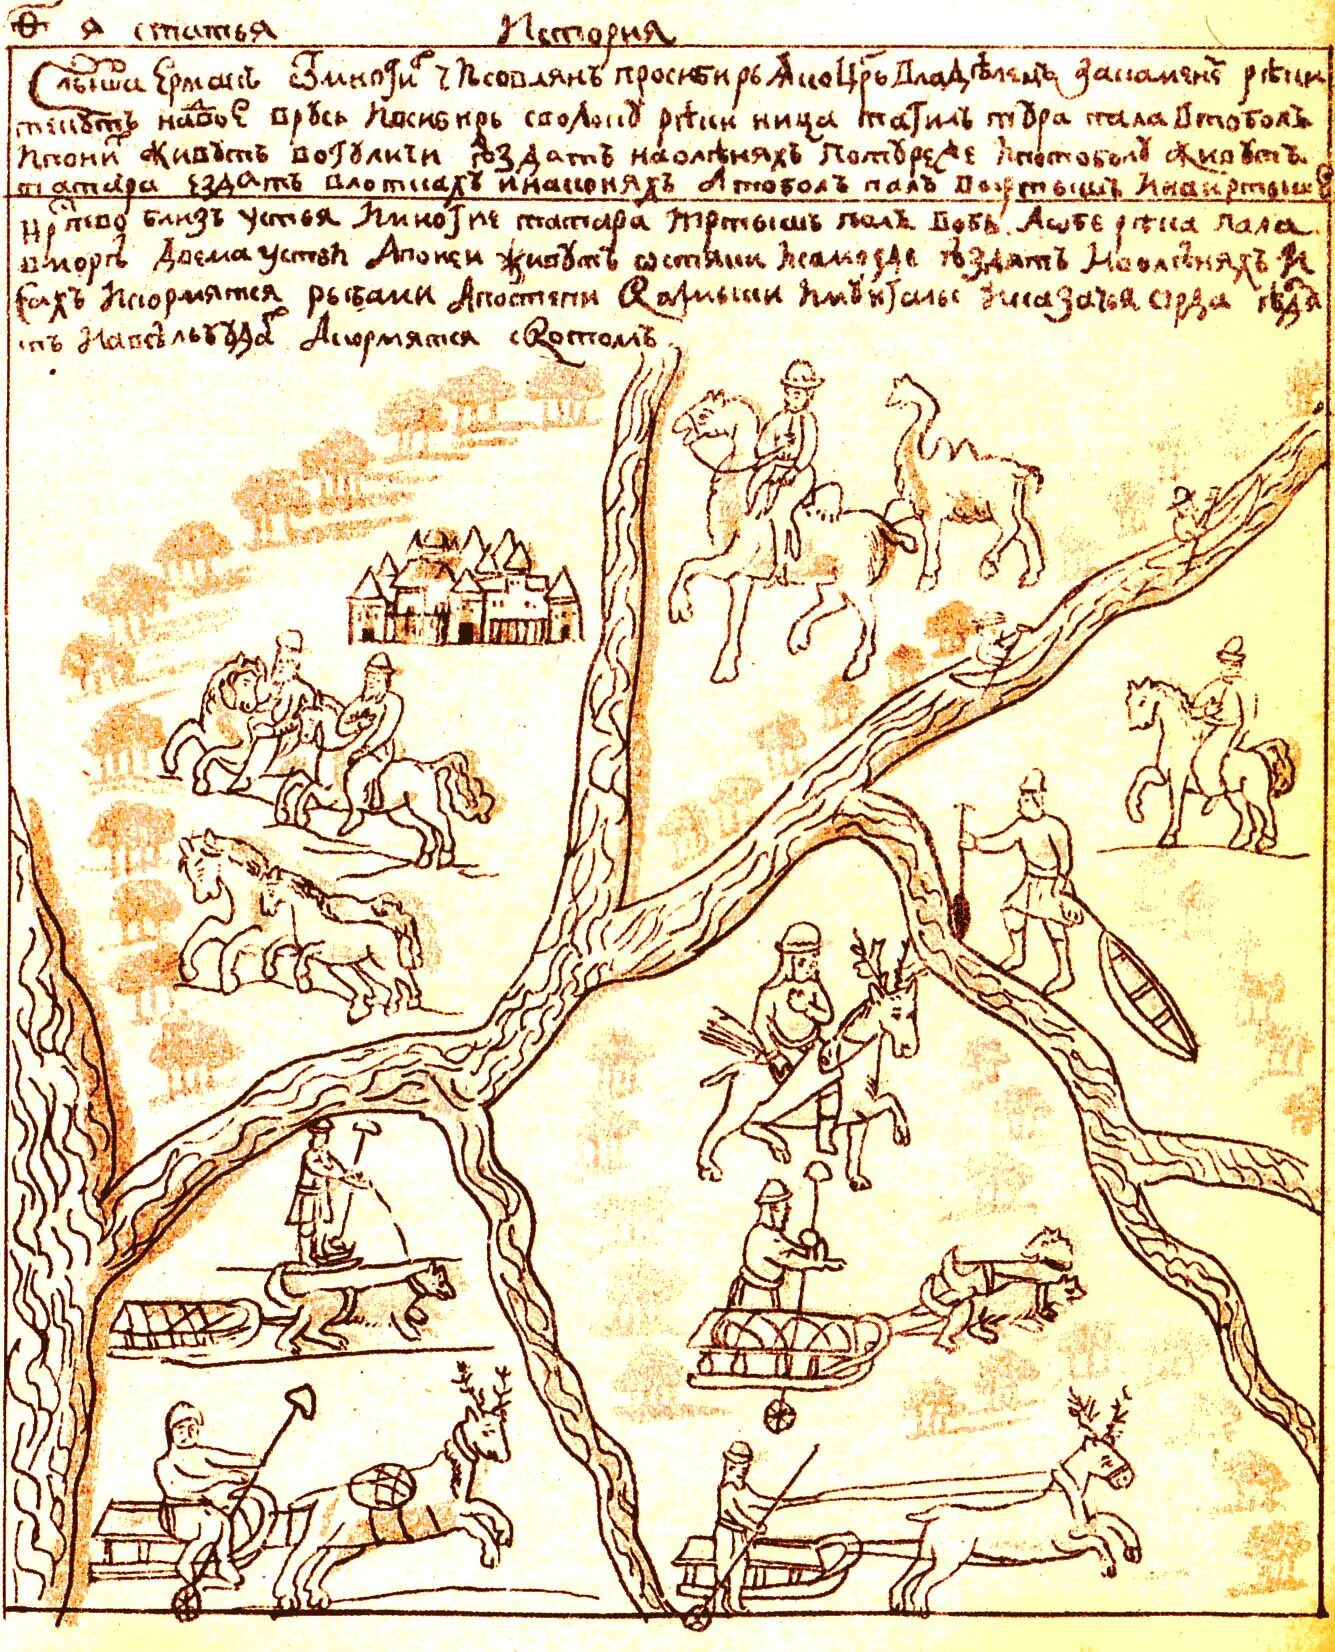 Ѳ я статья История
Слыша Ермакъ ѿ многи чюсовлянъ про Сибирь яко црь владѣлецъ за Каменемъ рѣки
текутъ на двое в Русь и в Сибирь с волоку рѣки Ница Тагилъ Тура пала в Тоболъ
и по ни живутъ вогуличи ѣздятъ на оленяхъ по Туре же и по Тоболу живутъ
татара ездятъ в лоткахъ и на коняхъ а Тоболъ палъ в Ыртышъ и на Иртыше
црство близъ устья и многие татара Иртышъ палъ в Объ а Обь река пала
в море двема устьи а по неи живутъ остяки и самоеде ѣздятъ на оленяхъ и
сахъ и кормятся рыбами а по степи калмыки и мунгалы и казачья орда ѣздя
тъ на вельблюда а кормятся скотомъ